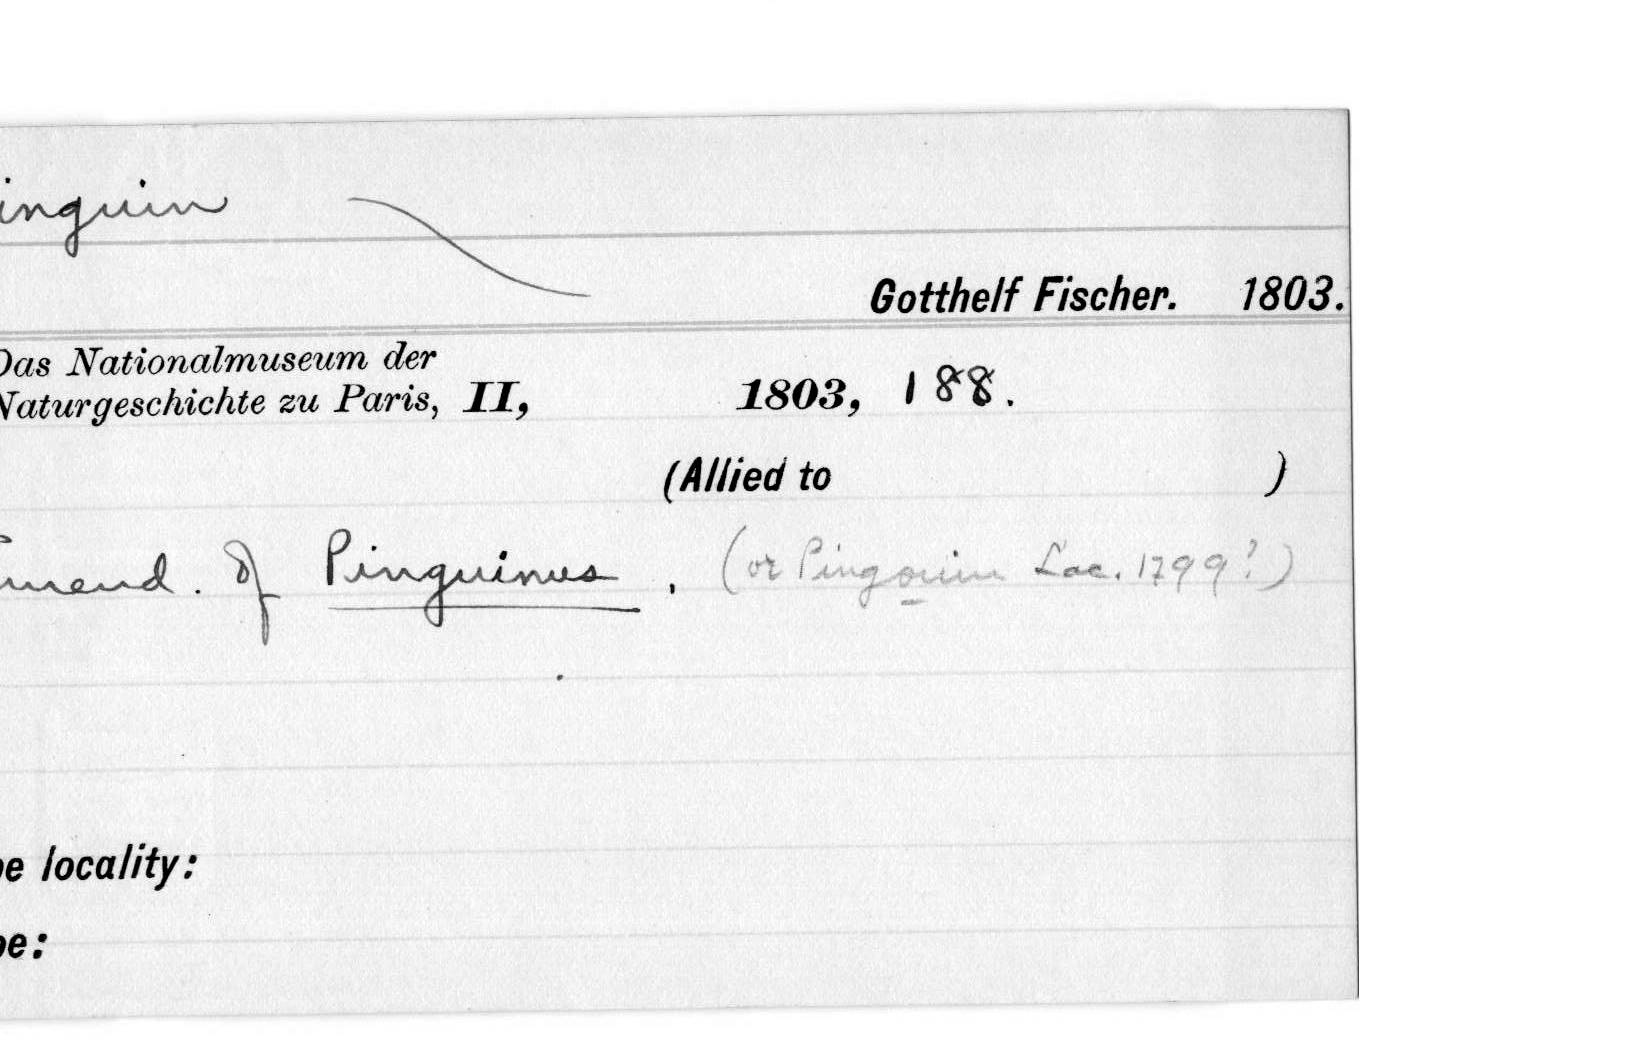 inguin
Gotthelf Fischer. 1803.
Das Nationalmuseum der
Naturgeschichte zu Paris, II, 1803, 188.
(Allied to )
mend. of Pinguinus. (or Pingouin Lac. 1799?)
pe locality:
pe: